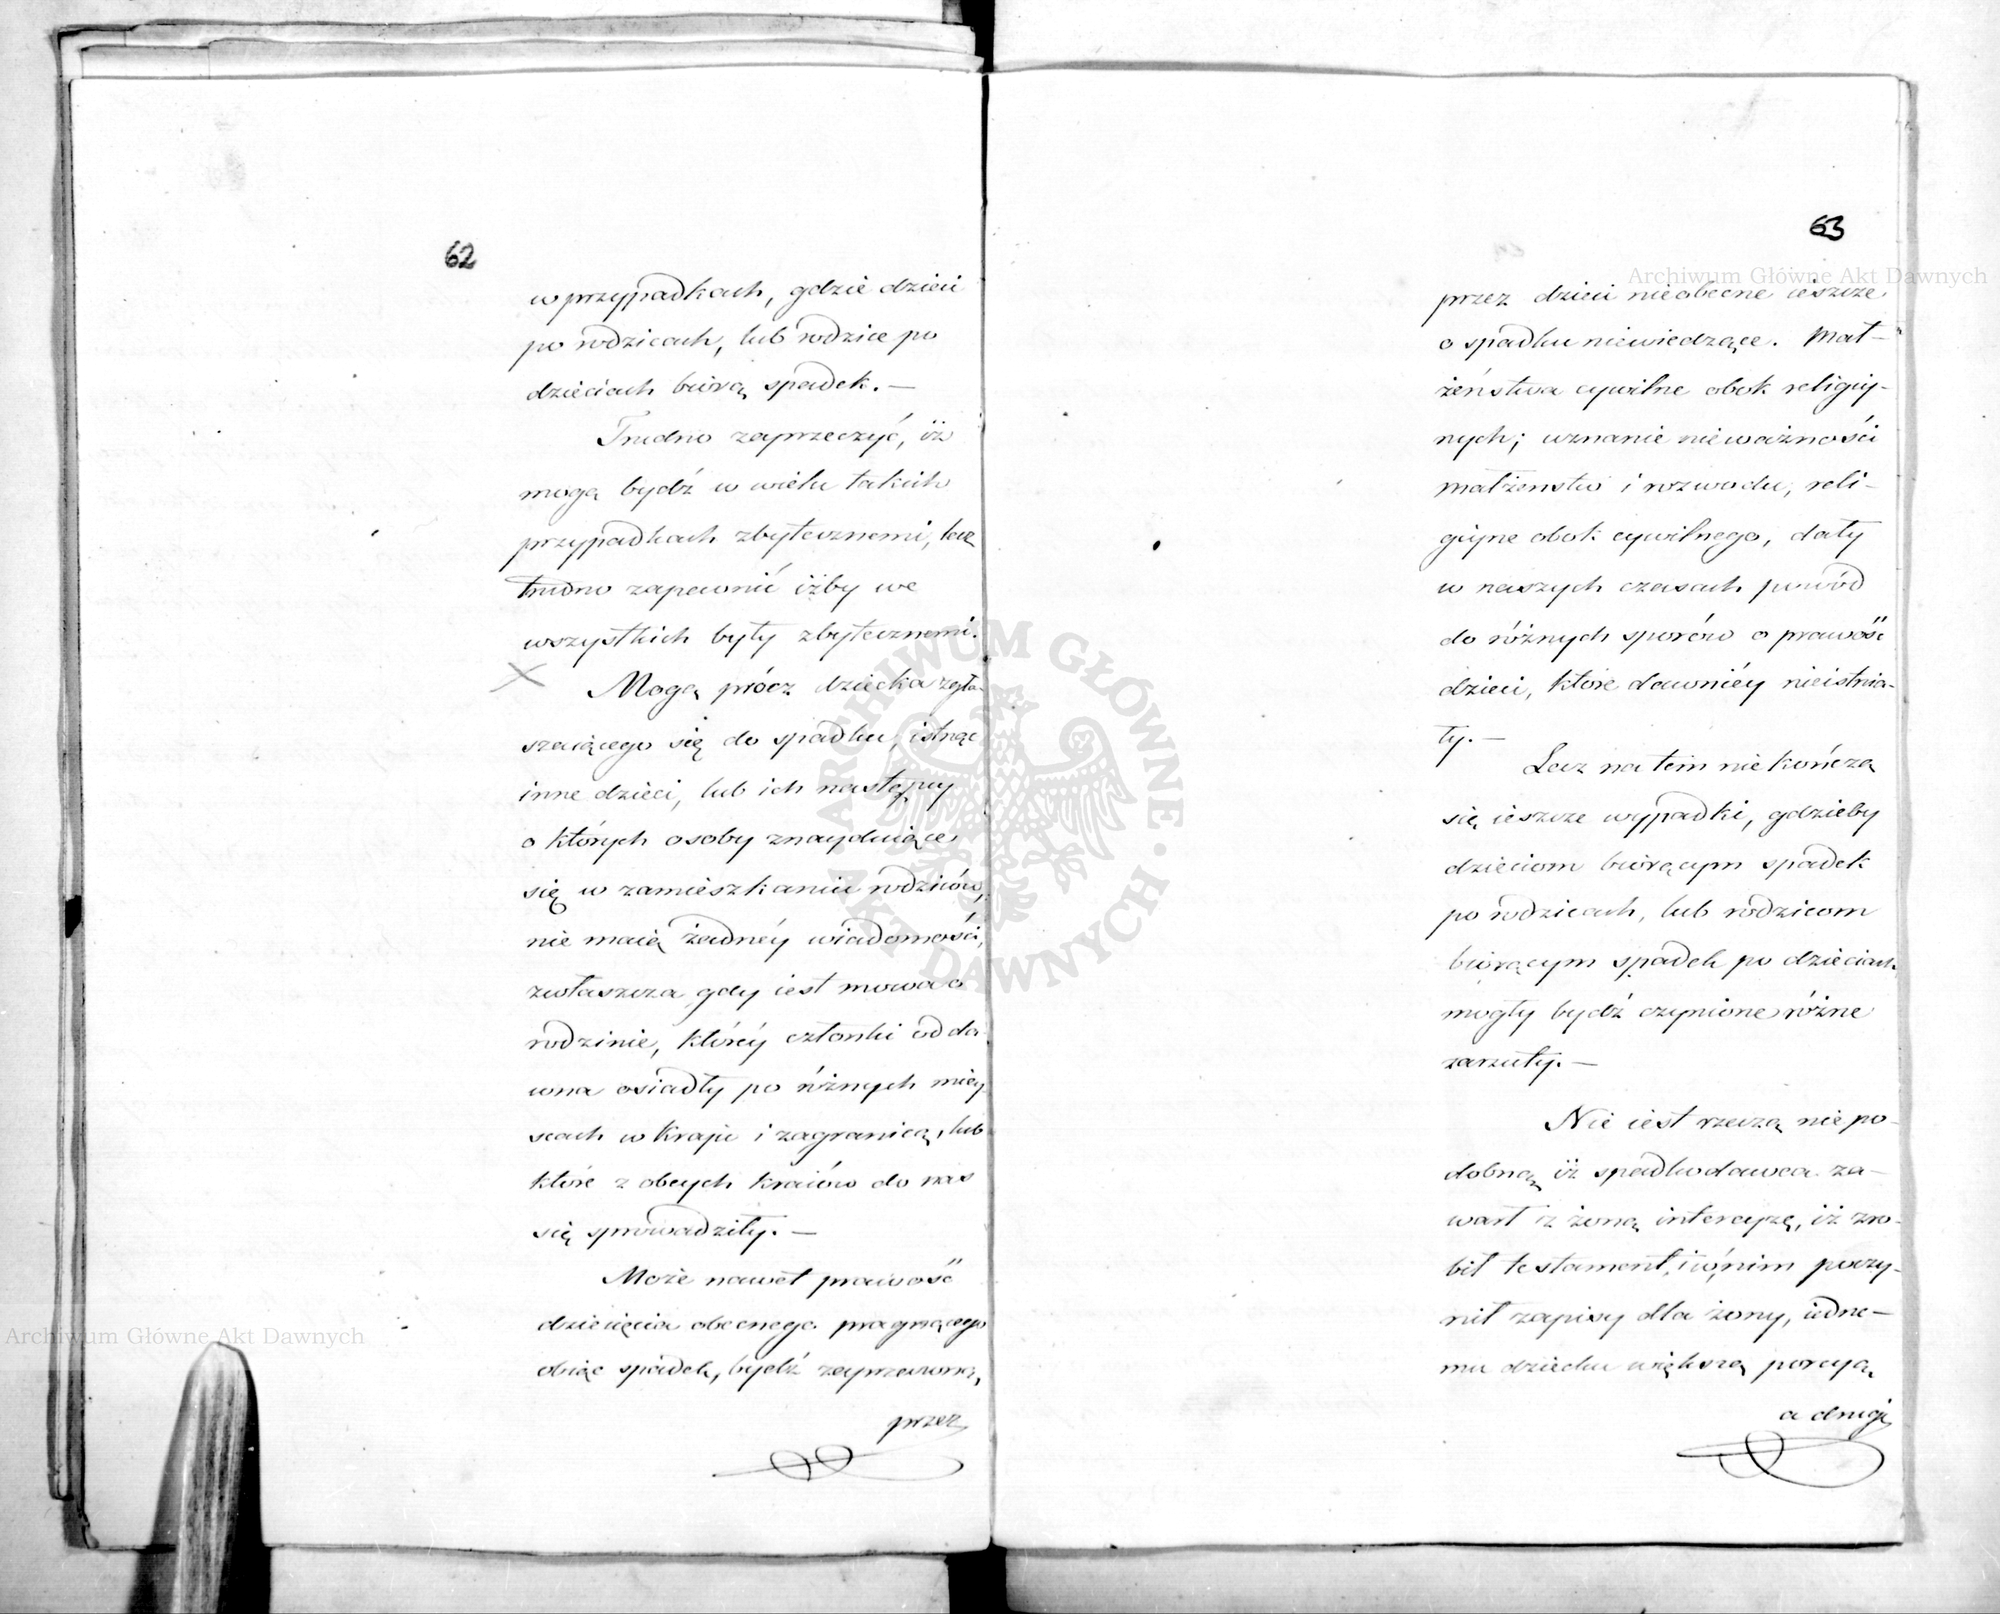 62
w przypadkach, gdzie dzieci
po rodzicach, lub rodzice po
dzieciach biorą spadek. —
Trudno zaprzeczyć, iż
mogą bydź w wielu takich
przypadkach zbytecznemi, lecz
trudno zapewnić iżby we
wszystkich były zbytecznemi.
Mogą prócz dziecka zgła-
szaiącego się do spadku, istnąć
inne dzieci, lub ich następcy
o których osoby znayduiące
się w zamieszkaniu rodziców,
nie maią żadnéy wiadomości,
zwłaszcza gdy iest mowa o
rodzinie, któréy członki od da-
wna osiadły po różnych miey-
scach w kraju i zagranicą, lub
które z obcych kraiów do nas
się sprowadziły. —
Może nawet prawość
dziecięcia obecnego pragnącego
obiąć spadek, bydź zaprzeczoną,
przez
63
przez dzieci nieobecne ieszcze
o spadku niewiedzące. Mał-
żeństwa cywilne obok religiy-
nych; uznanie nieważności
małżeństw i rozwodu, reli-
giyne obok cywilnego, dały
w naszych czasach powód
do różnych sporów o prawość
dzieci, które dawniéy nieistnia-
ły. —
Lecz na tém nie kończą
się ieszcze wypadki, gdzieby
dzieciom biorącym spadek
po rodzicach, lub rodzicom
biorącym spadek po dzieciach
mogły bydź czynione różne
zarzuty. —
Nie iest rzeczą niepo-
dobną iż spadkodawca za-
warł z żoną intercyzę, iż zro-
bił testament, i w nim poczy-
nił zapisy dla żony, iedne-
mu dziecku większą porcyą,
a drugi
Archiwum Główne Akt Dawnych
Archiwum Główne Akt Dawnych
ARCHIWUM GŁÓWNE · AKT DAWNYCH ·